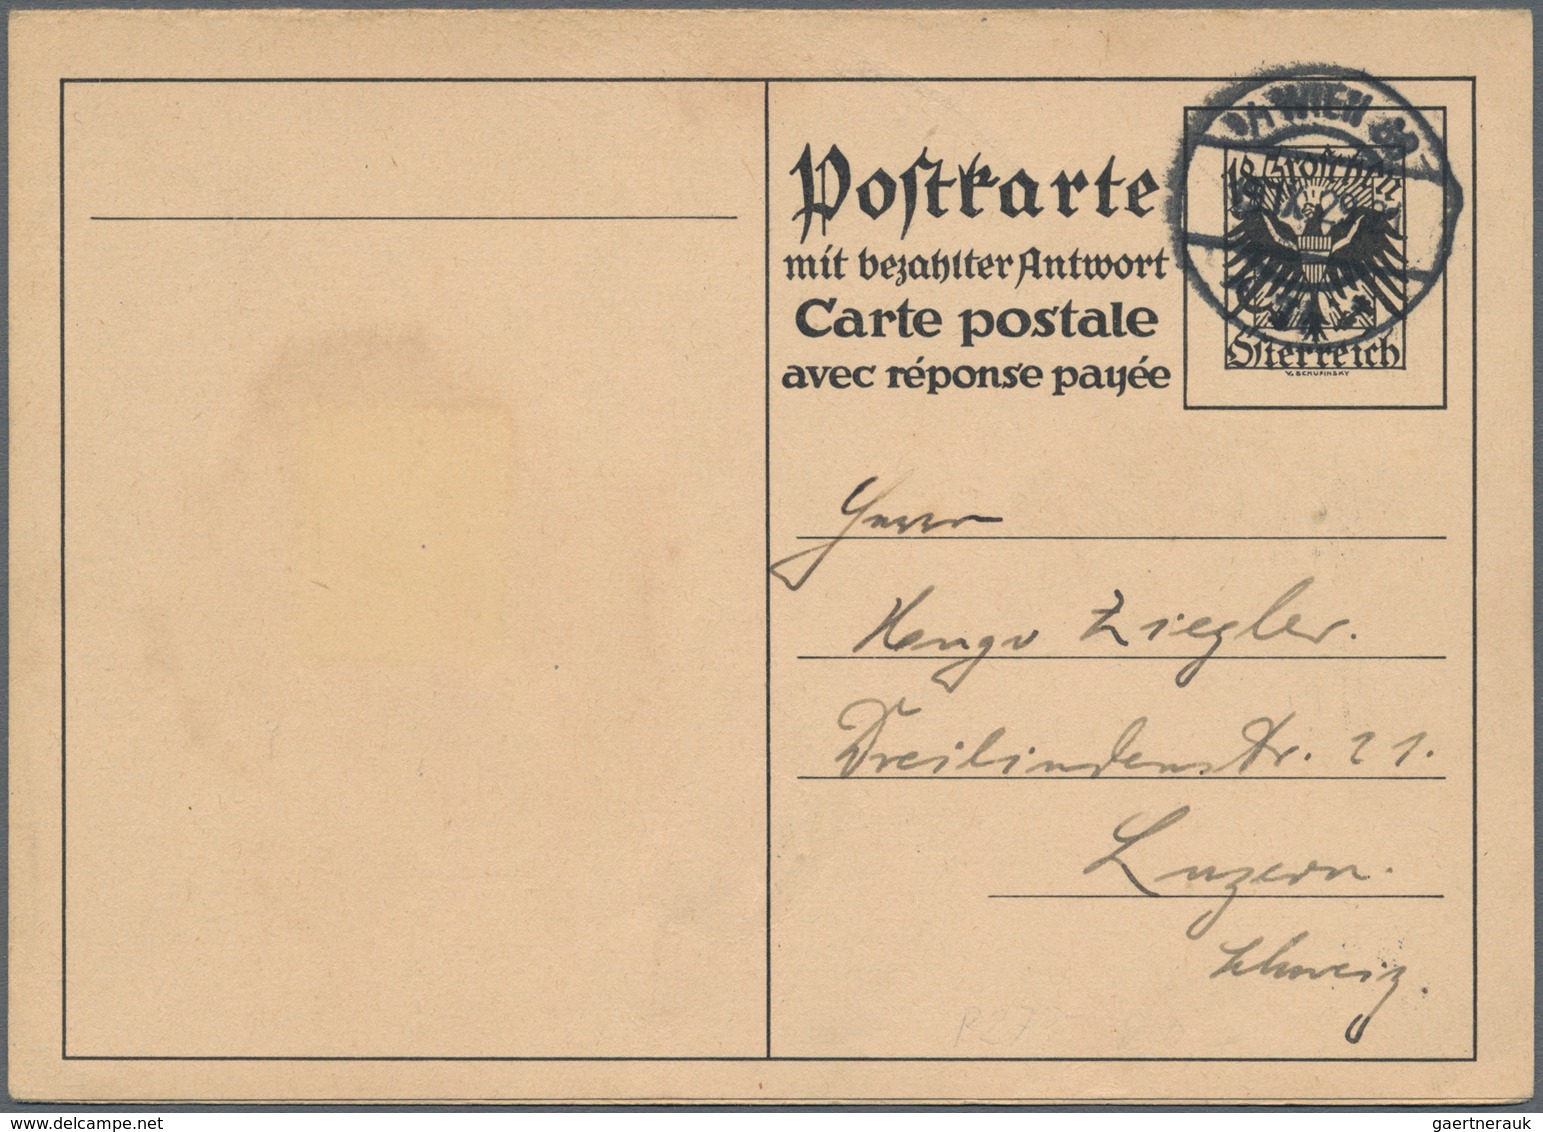 Postkarte
mit bezahlter Antwort
Carte postale
avec réponse payée
WIEN
18 Groschen
Österreich
V. SCHUFINSKY
Herrn
Hugo Ziegler.
Dreilindenstr. 21.
Luzern.
Schweiz.
P273
gaertnerauk @ delcampe.net